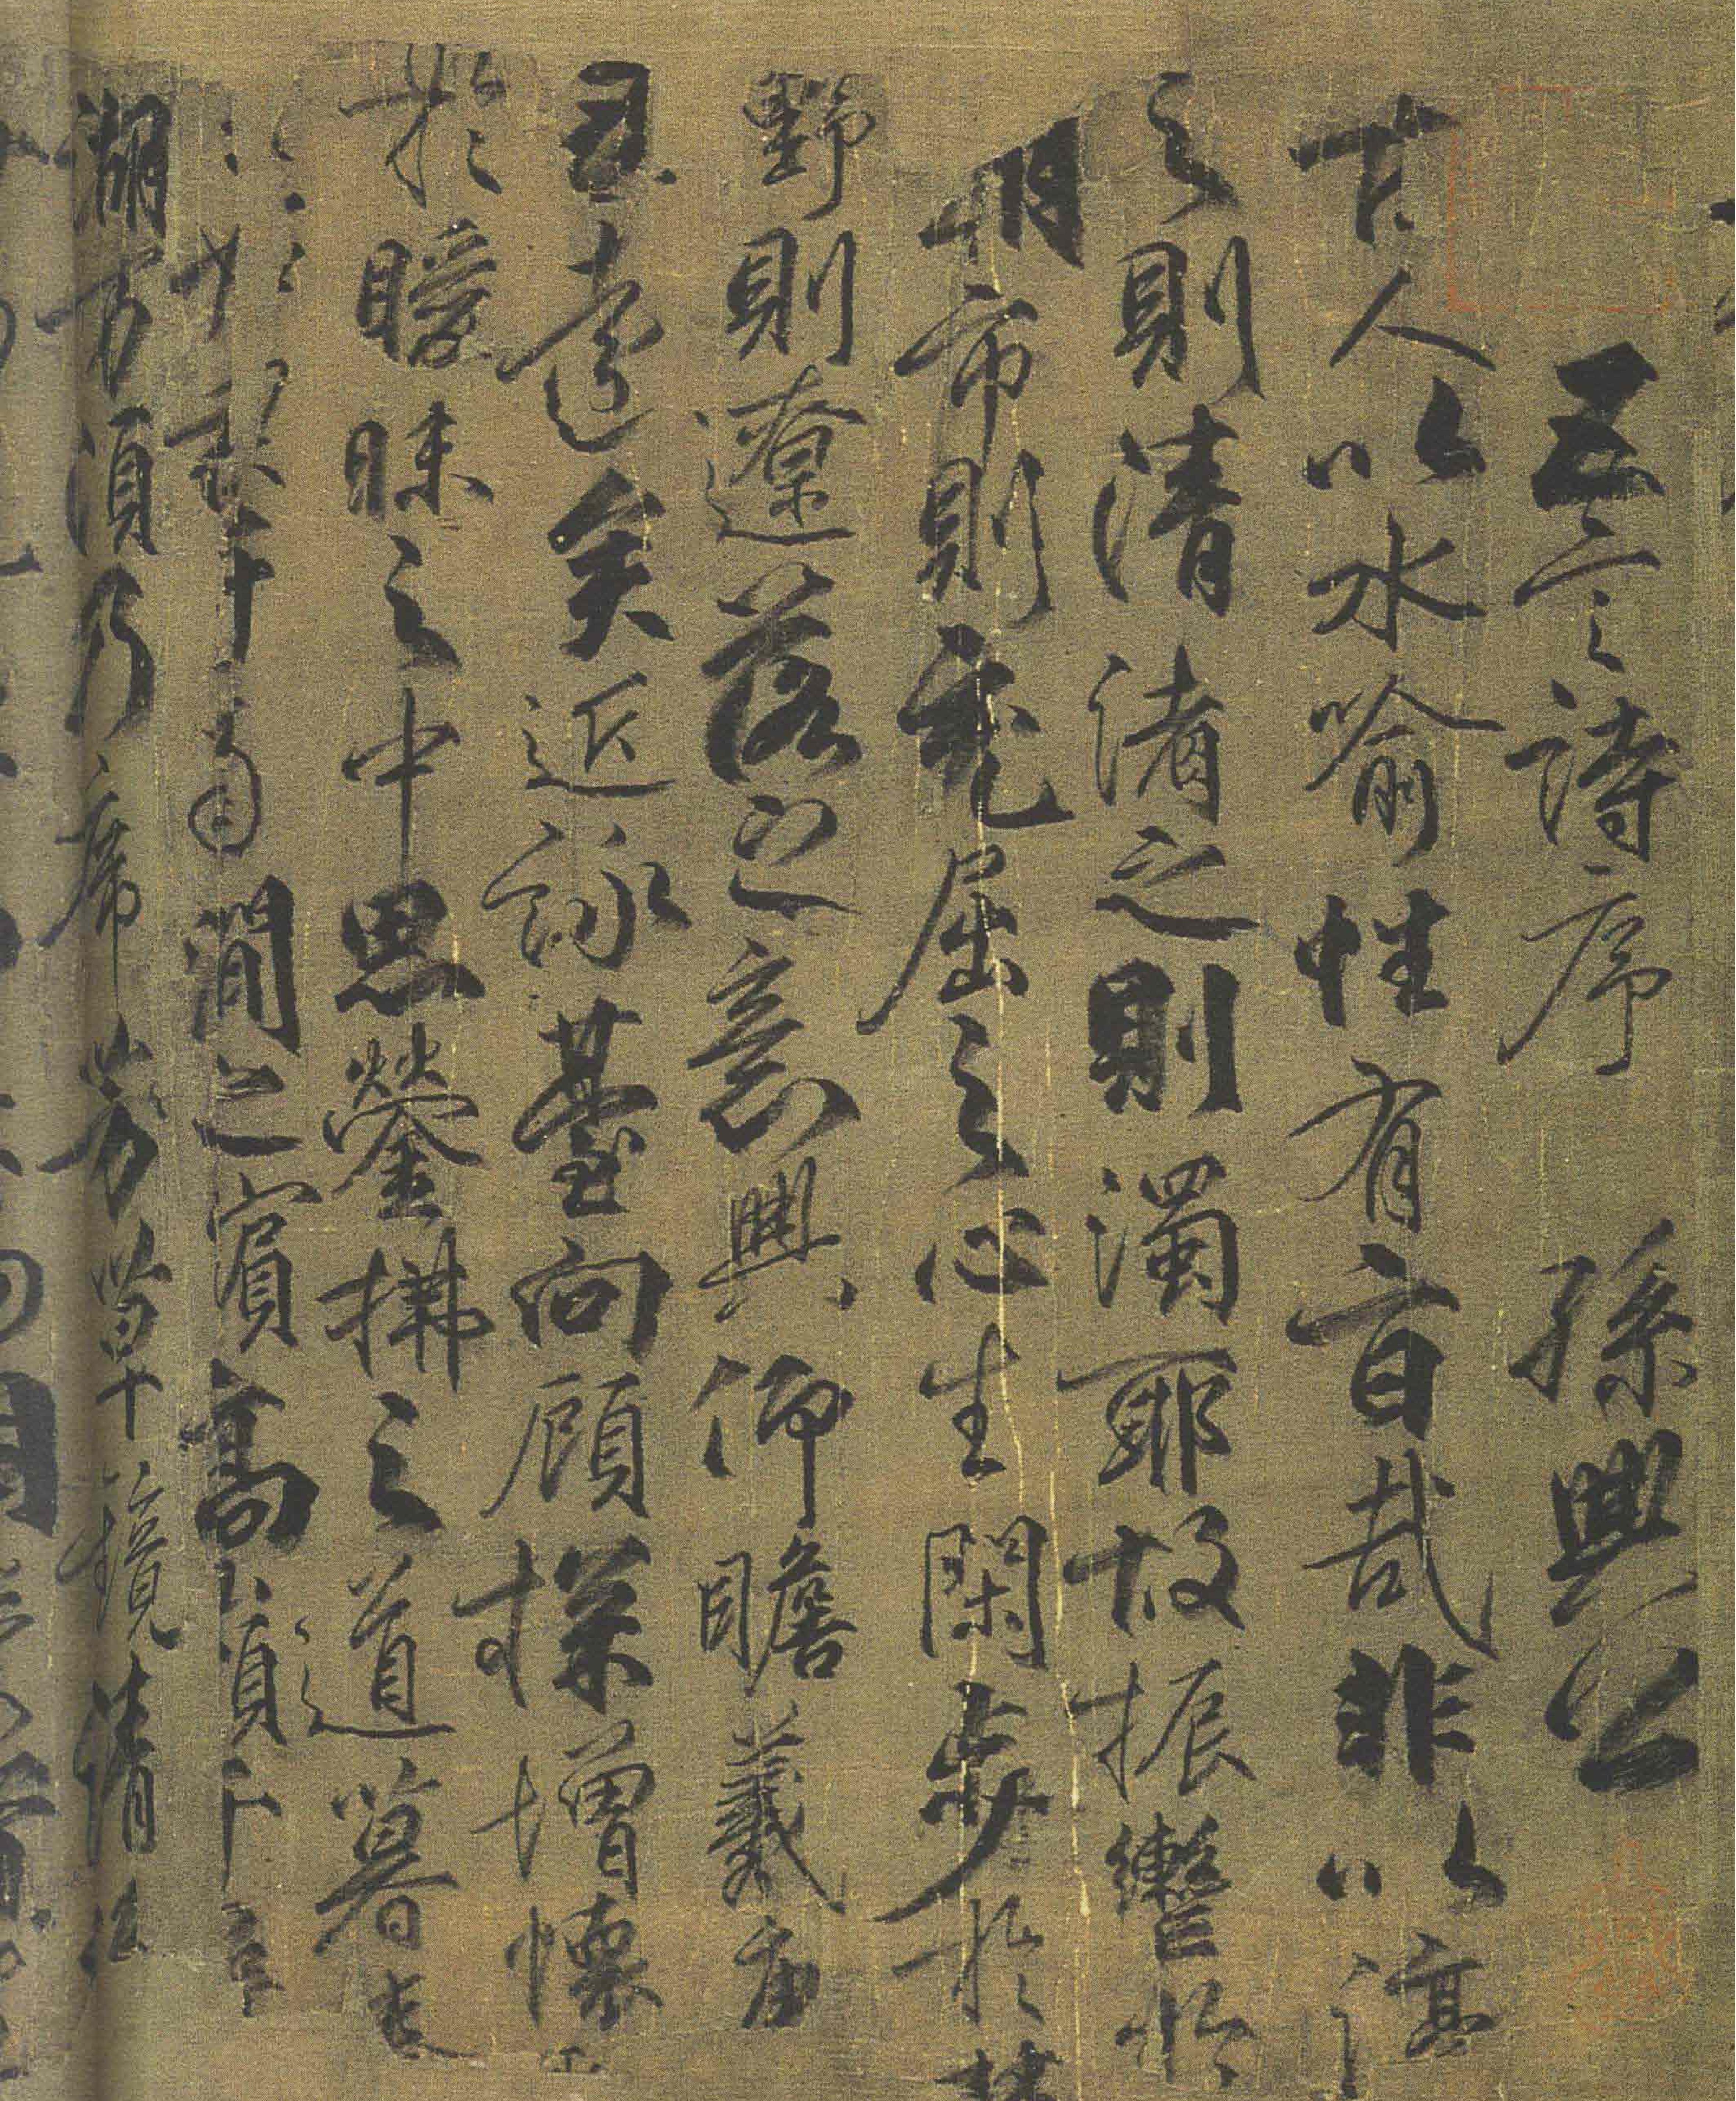 五言詩序 孫興公
古人以水喻性有旨哉非以渟
之則清渚之則濁耶故振轡於
朝市則充屈之心生閑步於林
野則遼落之意興仰瞻羲唐
遠矣近詠臺向顧探增懷
於曖昧之中思鎣拂之道暮春
南澗之濱高嶺千尋
湖万頃乃席芳草鏡清流